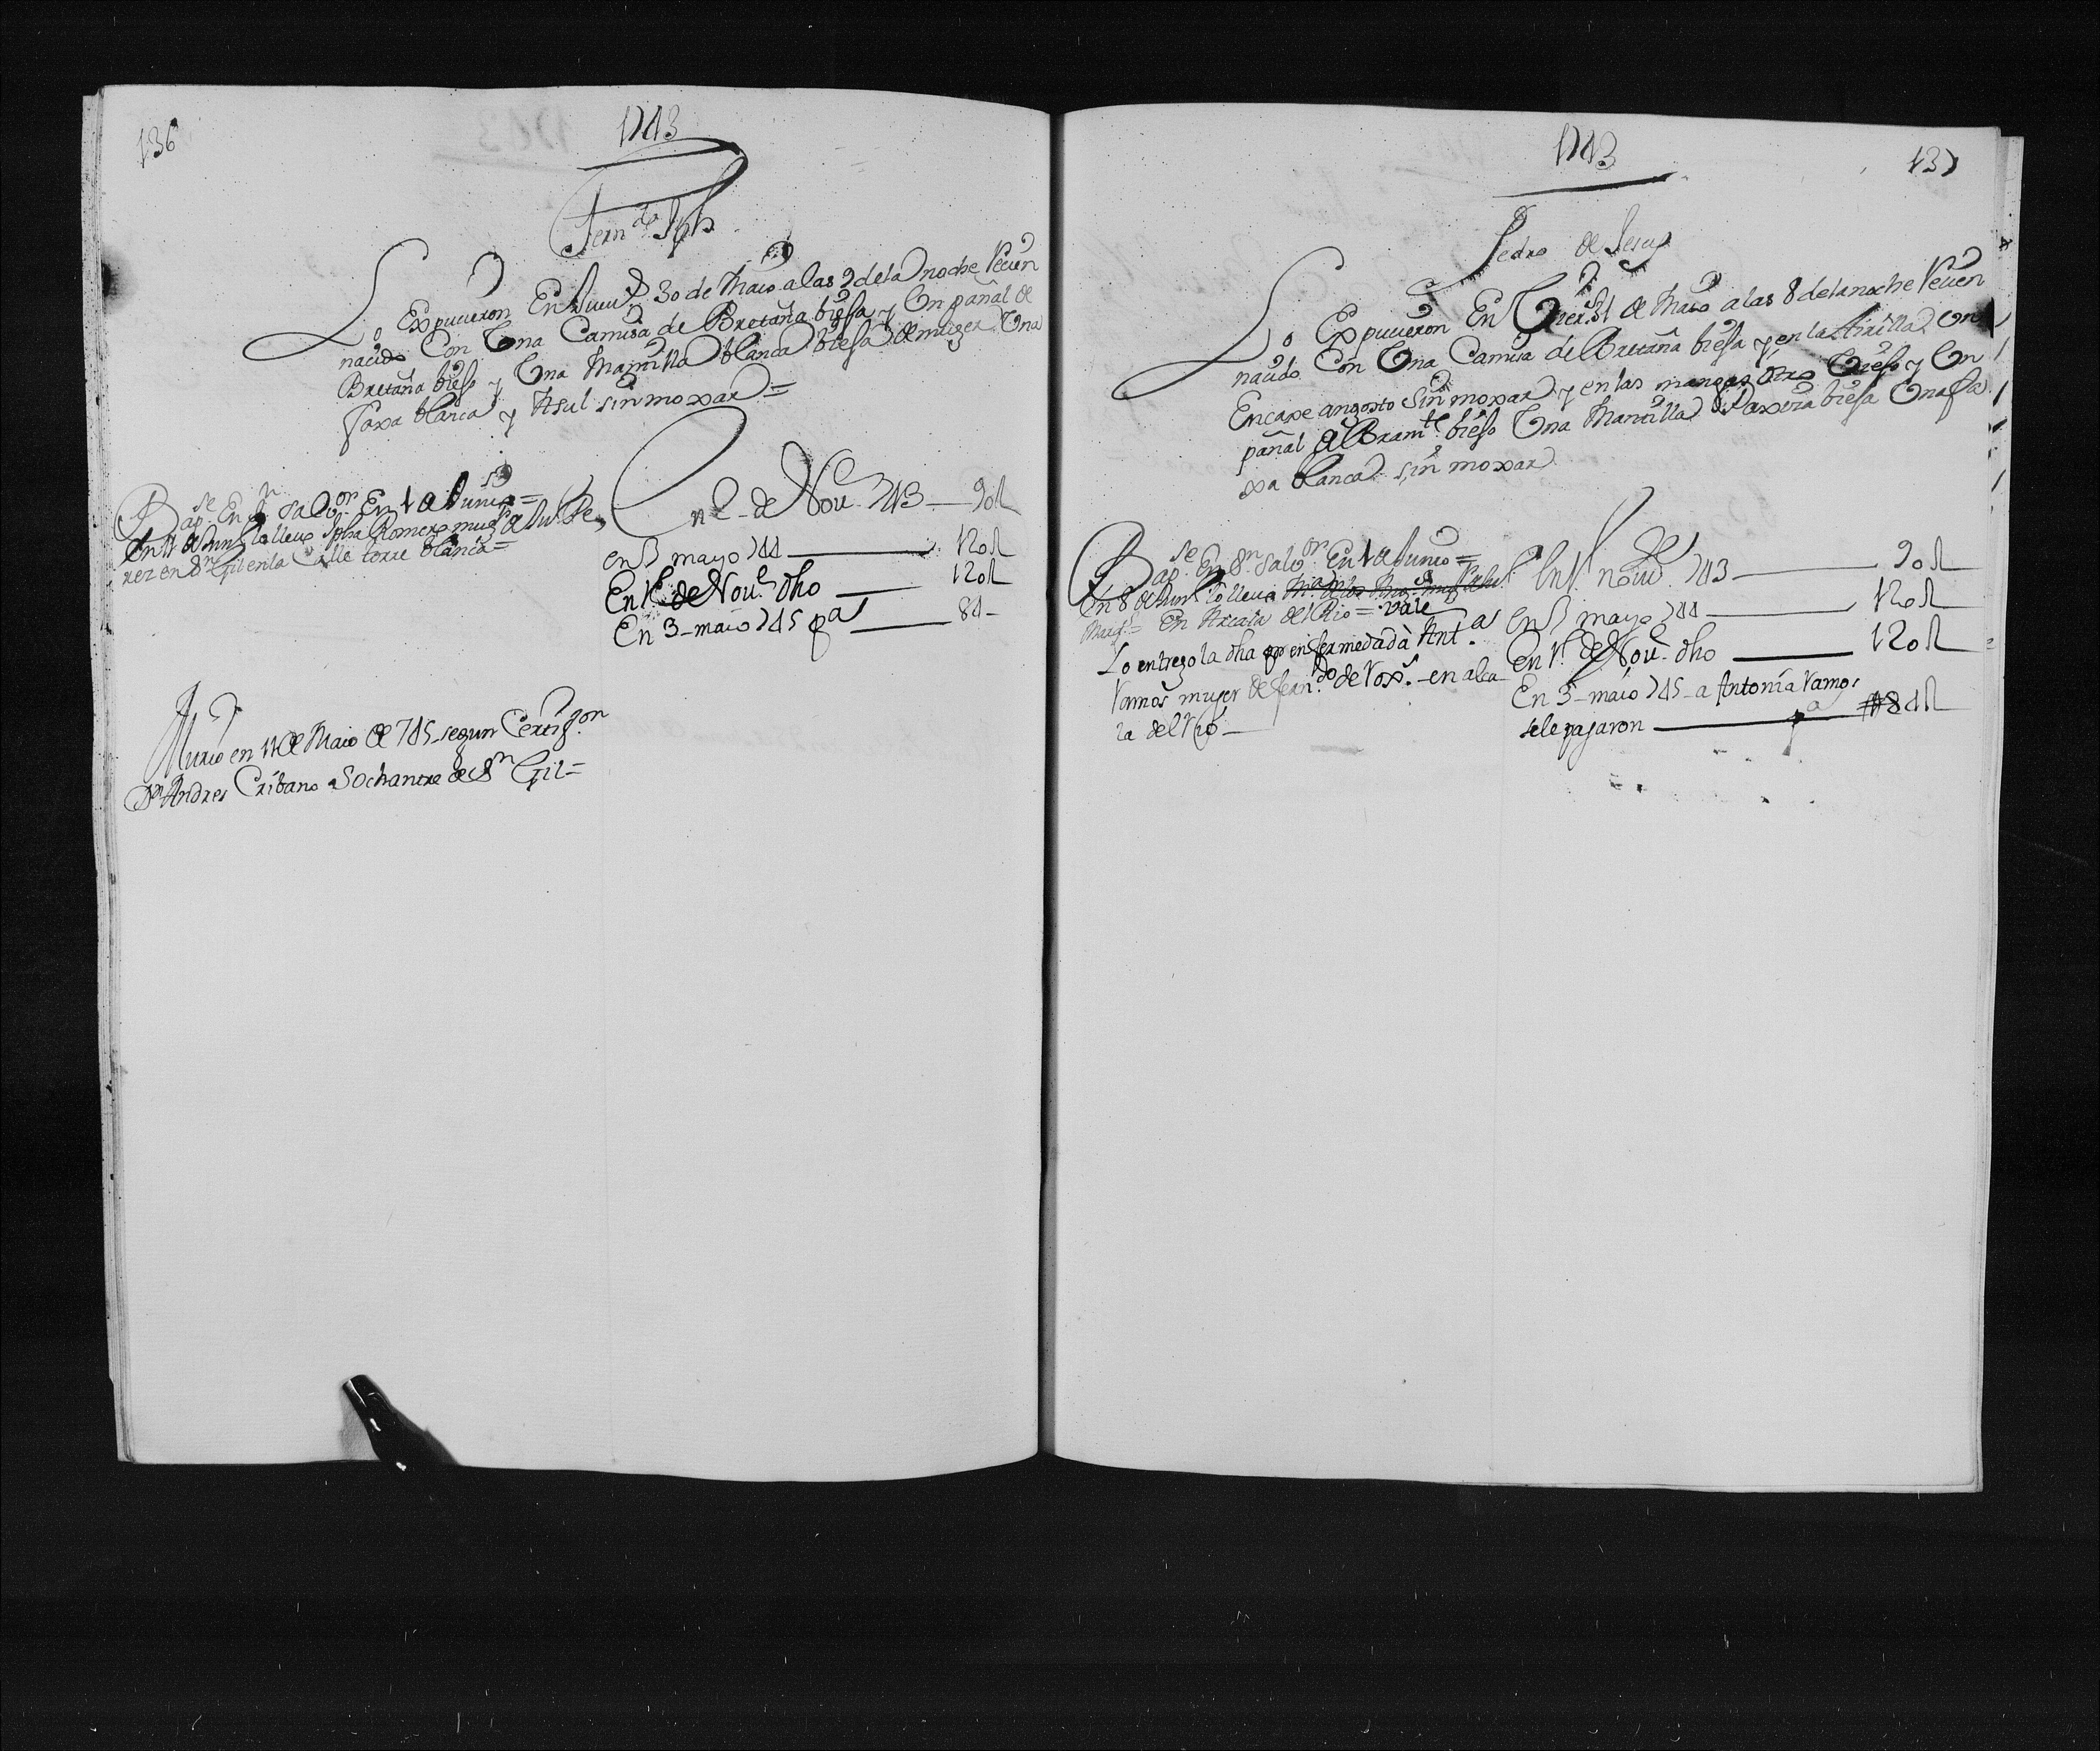 136
1743
Fern.do Jph
Lo Expucieron En Juev.s 30 de Maio a las 9 de la noche Recien
nacido Con Una Camisa de Bretaña biefa y Un pañal de
Bretaña biefo y Una Mantilla blanca biefa de muger Una
faxa blanca y Asul sin moxar =
Bap.se En S.n Salv.or En 1 de Junio =
En 11 de Jun.o lo llevo Jpha Romero mug.r de Ju.o Pe
rez en S.n Gil en la Calle torre blanca =
En 2 de Nov.e 743 — 90 R
en 3 mayo 744 — 120 R
En 1.o de Nov.e dho — 120 R
En 3 - maio 745 pa — 84 -
Murio en 11 de Maio de 745 segun Certifz.on
D.n Andres Cribano Sochantre de S.n Gil =
1743
137
Pedro de Jesus
Lo Expucieron En Vier.s 31 de Maio a las 8 de la noche Recien
nacido Con Una Camisa de Bretaña biefa y en la tirilla Un
Encaxe angosto Sin moxar y en las mangas otro biefo y Un
pañal de Bram.te biefo Una Mantilla de Baxeta biefa Una fa
xa blanca sin moxar
Bap.se En S.n Salv.or En 1 de Junio =
En 8 de Jun.o lo lleva M.a de los
Marq.s = En Alcala del Rio = vale
Lo entrego la dha por enfermedad à Ant.a
Ramos muger de fern.do de Rox.s - en alca
la del Rio -
En 1.o nov.e 743 — 90 R
en 3 mayo 744 — 120 R
En 1.o de Nov.e dho — 120 R
En 3 - maio 745 - a Antonia Ramos
se le pagaron — pa 84 R